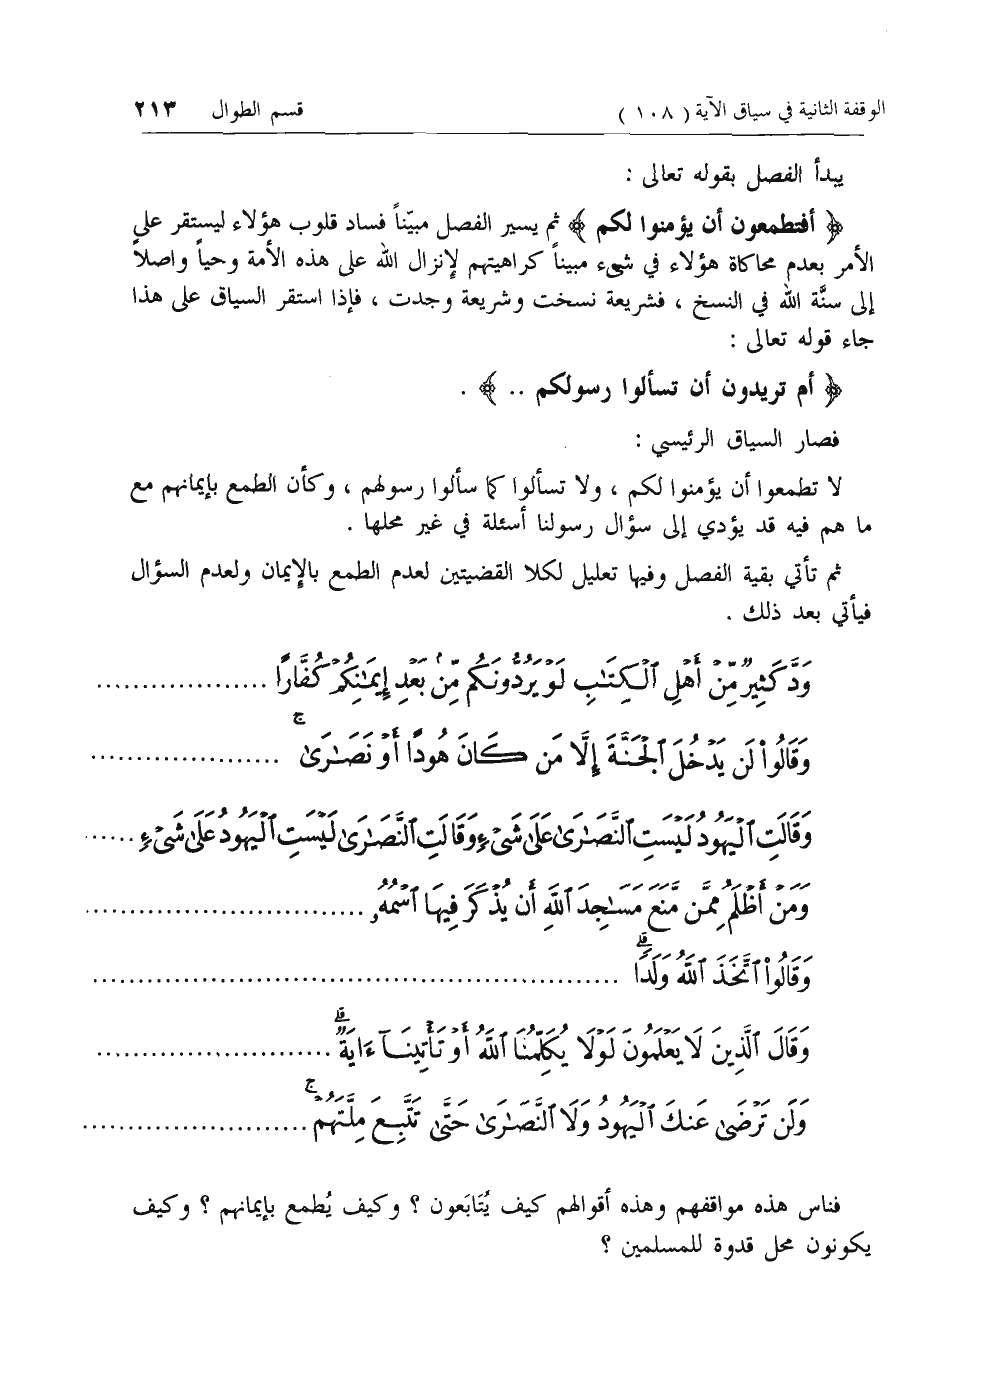 الوقفة الثانية في سياق الآية ( ١٠٨ ) قسم الطوال ٢١٣
يبدأ الفصل بقوله تعالى :
﴿ أفتطمعون أن يؤمنوا لكم ﴾ ثم يسير الفصل مبيّناً فساد قلوب هؤلاء ليستقر على
الأمر بعدم محاكاة هؤلاء في شيء مبيناً كراهيتهم لإنزال الله على هذه الأمة وحياً واصلاً
إلى سنَّة الله في النسخ ، فشريعة نسخت وشريعة وجدت ، فإذا استقر السياق على هذا
جاء قوله تعالى :
﴿ أم تريدون أن تسألوا رسولكم .. ﴾ .
فصار السياق الرئيسي :
لا تطمعوا أن يؤمنوا لكم ، ولا تسألوا كما سألوا رسولهم ، وكأن الطمع بإيمانهم مع
ما هم فيه قد يؤدي إلى سؤال رسولنا أسئلة في غير محلها .
ثم تأتي بقية الفصل وفيها تعليل لكلا القضيتين لعدم الطمع بالإيمان ولعدم السؤال
فيأتي بعد ذلك .
وَدَّ كَثِيرٌ مِّنْ أَهْلِ ٱلْكِتَٰبِ لَوْ يَرُدُّونَكُم مِّنۢ بَعْدِ إِيمَٰنِكُمْ كُفَّارًا ..................
وَقَالُوا۟ لَن يَدْخُلَ ٱلْجَنَّةَ إِلَّا مَن كَانَ هُودًا أَوْ نَصَٰرَىٰ ۚ ....................
وَقَالَتِ ٱلْيَهُودُ لَيْسَتِ ٱلنَّصَٰرَىٰ عَلَىٰ شَىْءٍ وَقَالَتِ ٱلنَّصَٰرَىٰ لَيْسَتِ ٱلْيَهُودُ عَلَىٰ شَىْءٍ ......
وَمَنْ أَظْلَمُ مِمَّن مَّنَعَ مَسَٰجِدَ ٱللَّهِ أَن يُذْكَرَ فِيهَا ٱسْمُهُۥ ..............................
وَقَالُوا۟ ٱتَّخَذَ ٱللَّهُ وَلَدًا ۗ ........................................................
وَقَالَ ٱلَّذِينَ لَا يَعْلَمُونَ لَوْلَا يُكَلِّمُنَا ٱللَّهُ أَوْ تَأْتِينَآ ءَايَةٌ ۗ .........................
وَلَن تَرْضَىٰ عَنكَ ٱلْيَهُودُ وَلَا ٱلنَّصَٰرَىٰ حَتَّىٰ تَتَّبِعَ مِلَّتَهُمْ ۚ ........................
فناس هذه مواقفهم وهذه أقوالهم كيف يُتَابَعون ؟ وكيف يُطمع بإيمانهم ؟ وكيف
يكونون محل قدوة للمسلمين ؟